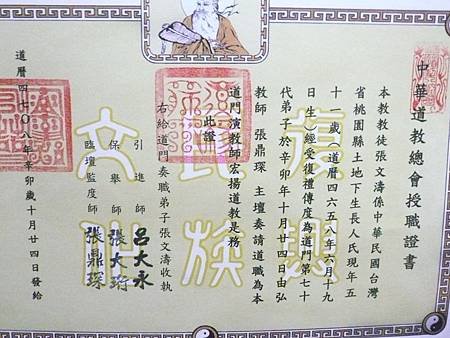 中華道教總會授職證書
本教教徒張文濤係中華民國台灣
省桃園縣土地下生長人氏現年五
十一歲(道曆四六五八年六月十九
日生)經受復禮傳度為道門第七十
代弟子於辛卯年十月廿四日由弘
教師張鼎琛主壇奏請道職為本
道門演教師宏揚道教是務
此證
右給道門奏職弟子張文濤收執
引進師呂大永
保舉師張大珩
臨壇監度師張鼎琛
道曆四七〇八年辛卯歲十月廿四日發給
復興
民族
文